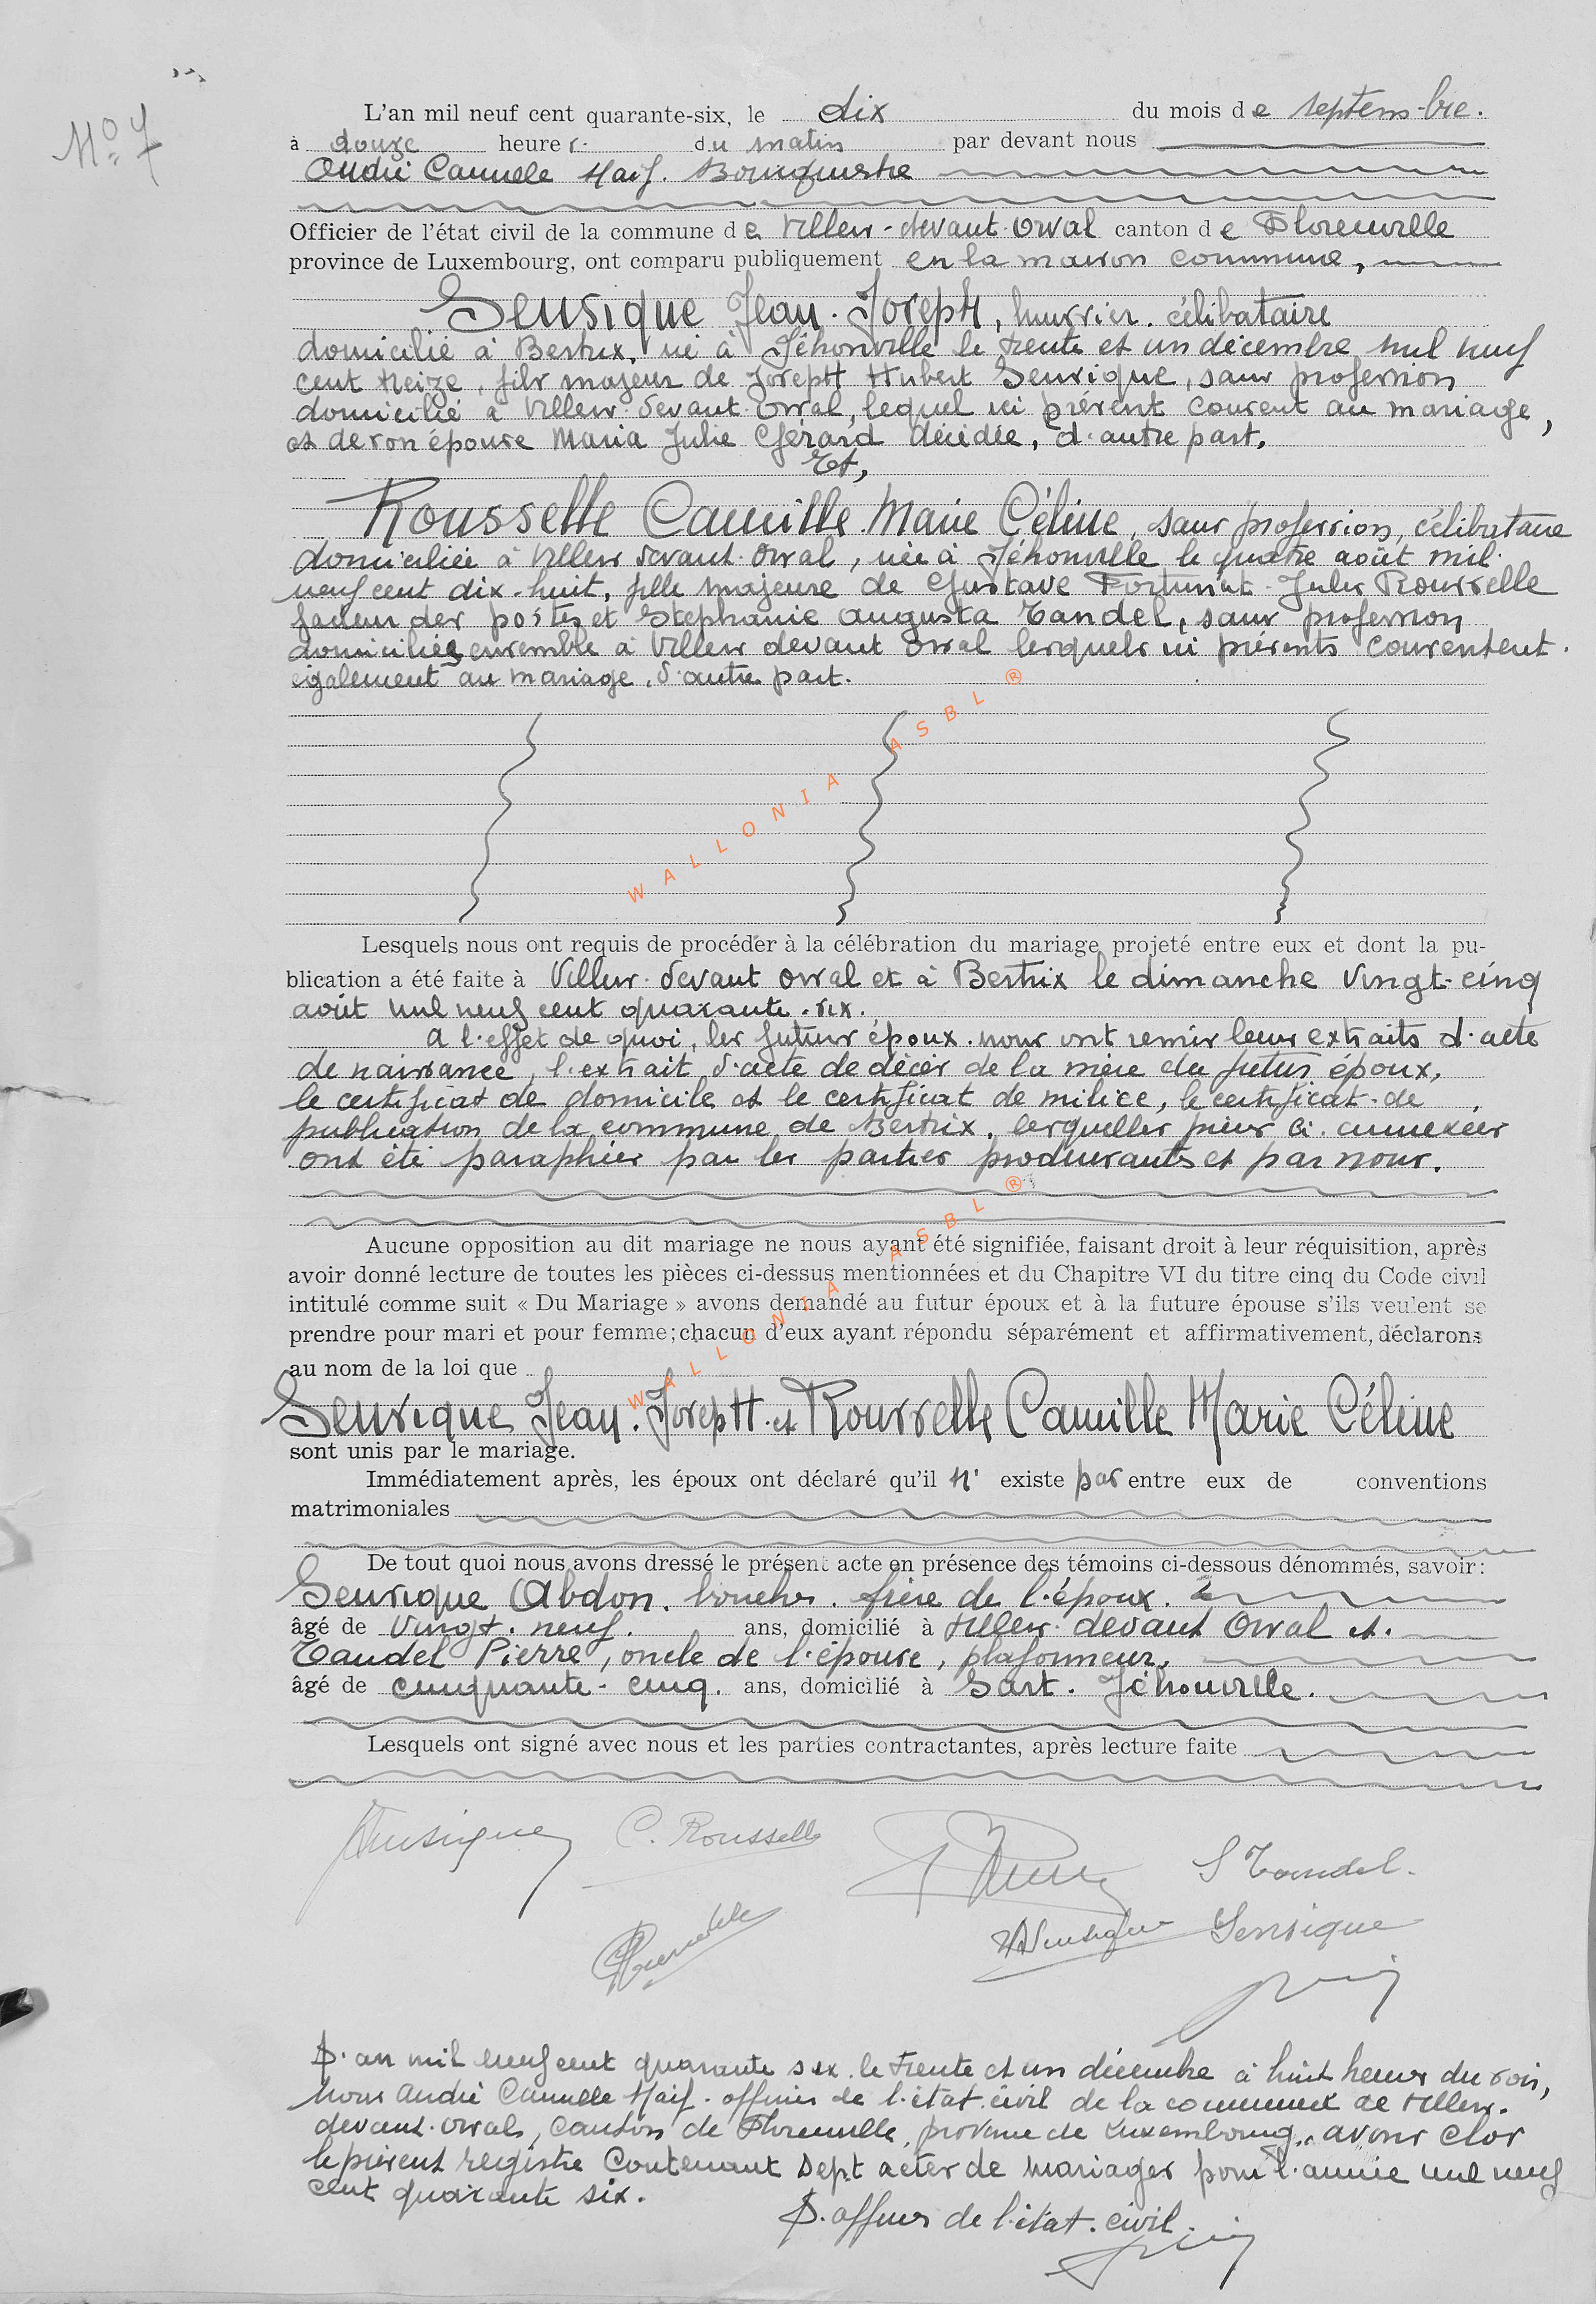 No 7
L'an mil neuf cent quarante-six, le dix du mois de septembre.
à douze heures du matin par devant nous
André Camille Haif. Bourgmestre
Officier de l'état civil de la commune de Villers-devant-Orval canton de Florenville
province de Luxembourg, ont comparu publiquement en la maison commune,
Sensique Jean-Joseph, huissier. célibataire
domicilié à Bertrix, né à Jéhonville le trente et un décembre mil neuf
cent treize, fils majeur de Joseph Hubert Sensique, sans profession
domicilié à Villers-devant-Orval, lequel ici présent consent au mariage,
et de son épouse Maria Julie Gérard décédée, d'autre part.
Et,
Rousselle Camille Marie Céline, sans profession, célibataire
domiciliée à Villers devant Orval, née à Jéhonville le quatre août mil
neuf cent dix-huit, fille majeure de Gustave Fortunat-Jules Rousselle
facteur des postes et Stephanie Augusta Tandel, sans profession
domiciliés ensemble à Villers devant Orval lesquels ici présents consentent
également au mariage, d'autre part.
WALLONIA ASBL ®
Lesquels nous ont requis de procéder à la célébration du mariage projeté entre eux et dont la pu-
blication a été faite à Villers-devant Orval et à Bertrix le dimanche vingt-cinq
août mil neuf cent quarante-six.
A l'effet de quoi, les futurs époux nous ont remis leurs extraits d'acte
de naissance, l'extrait d'acte de décès de la mère du futur époux,
le certificat de domicile et le certificat de milice, le certificat de
publication de la commune de Bertrix, lesquelles pièces ci-annexées
ont été paraphées par les parties produisants et par nous.
WALLONIA ASBL ®
Aucune opposition au dit mariage ne nous ayant été signifiée, faisant droit à leur réquisition, après
avoir donné lecture de toutes les pièces ci-dessus mentionnées et du Chapitre VI du titre cinq du Code civil
intitulé comme suit « Du Mariage » avons demandé au futur époux et à la future épouse s'ils veulent se
prendre pour mari et pour femme; chacun d'eux ayant répondu séparément et affirmativement, déclarons
au nom de la loi que
Sensique Jean-Joseph et Rousselle Camille Marie Céline
sont unis par le mariage.
Immédiatement après, les époux ont déclaré qu'il n' existe pas entre eux de conventions
matrimoniales
De tout quoi nous avons dressé le présent acte en présence des témoins ci-dessous dénommés, savoir:
Sensique Abdon. boucher. frère de l'époux.
âgé de vingt-neuf. ans, domicilié à Villers-devant Orval et.
Tandel Pierre, oncle de l'épouse, plafonneur,
âgé de cinquante-cinq. ans, domicilié à Sart-Jéhonville.
Lesquels ont signé avec nous et les parties contractantes, après lecture faite
Sensique C. Rousselle
S Tandel.
Sensique
L'an mil neuf cent quarante six. le trente et un décembre à huit heures du soir,
Nous André Camille Haif. officier de l'état civil de la commune de Villers-
devant-Orval, canton de Florenville, province de Luxembourg, avons clos
le présent registre contenant sept actes de mariages pour l'année mil neuf
cent quarante six.
L'officier de l'état civil.